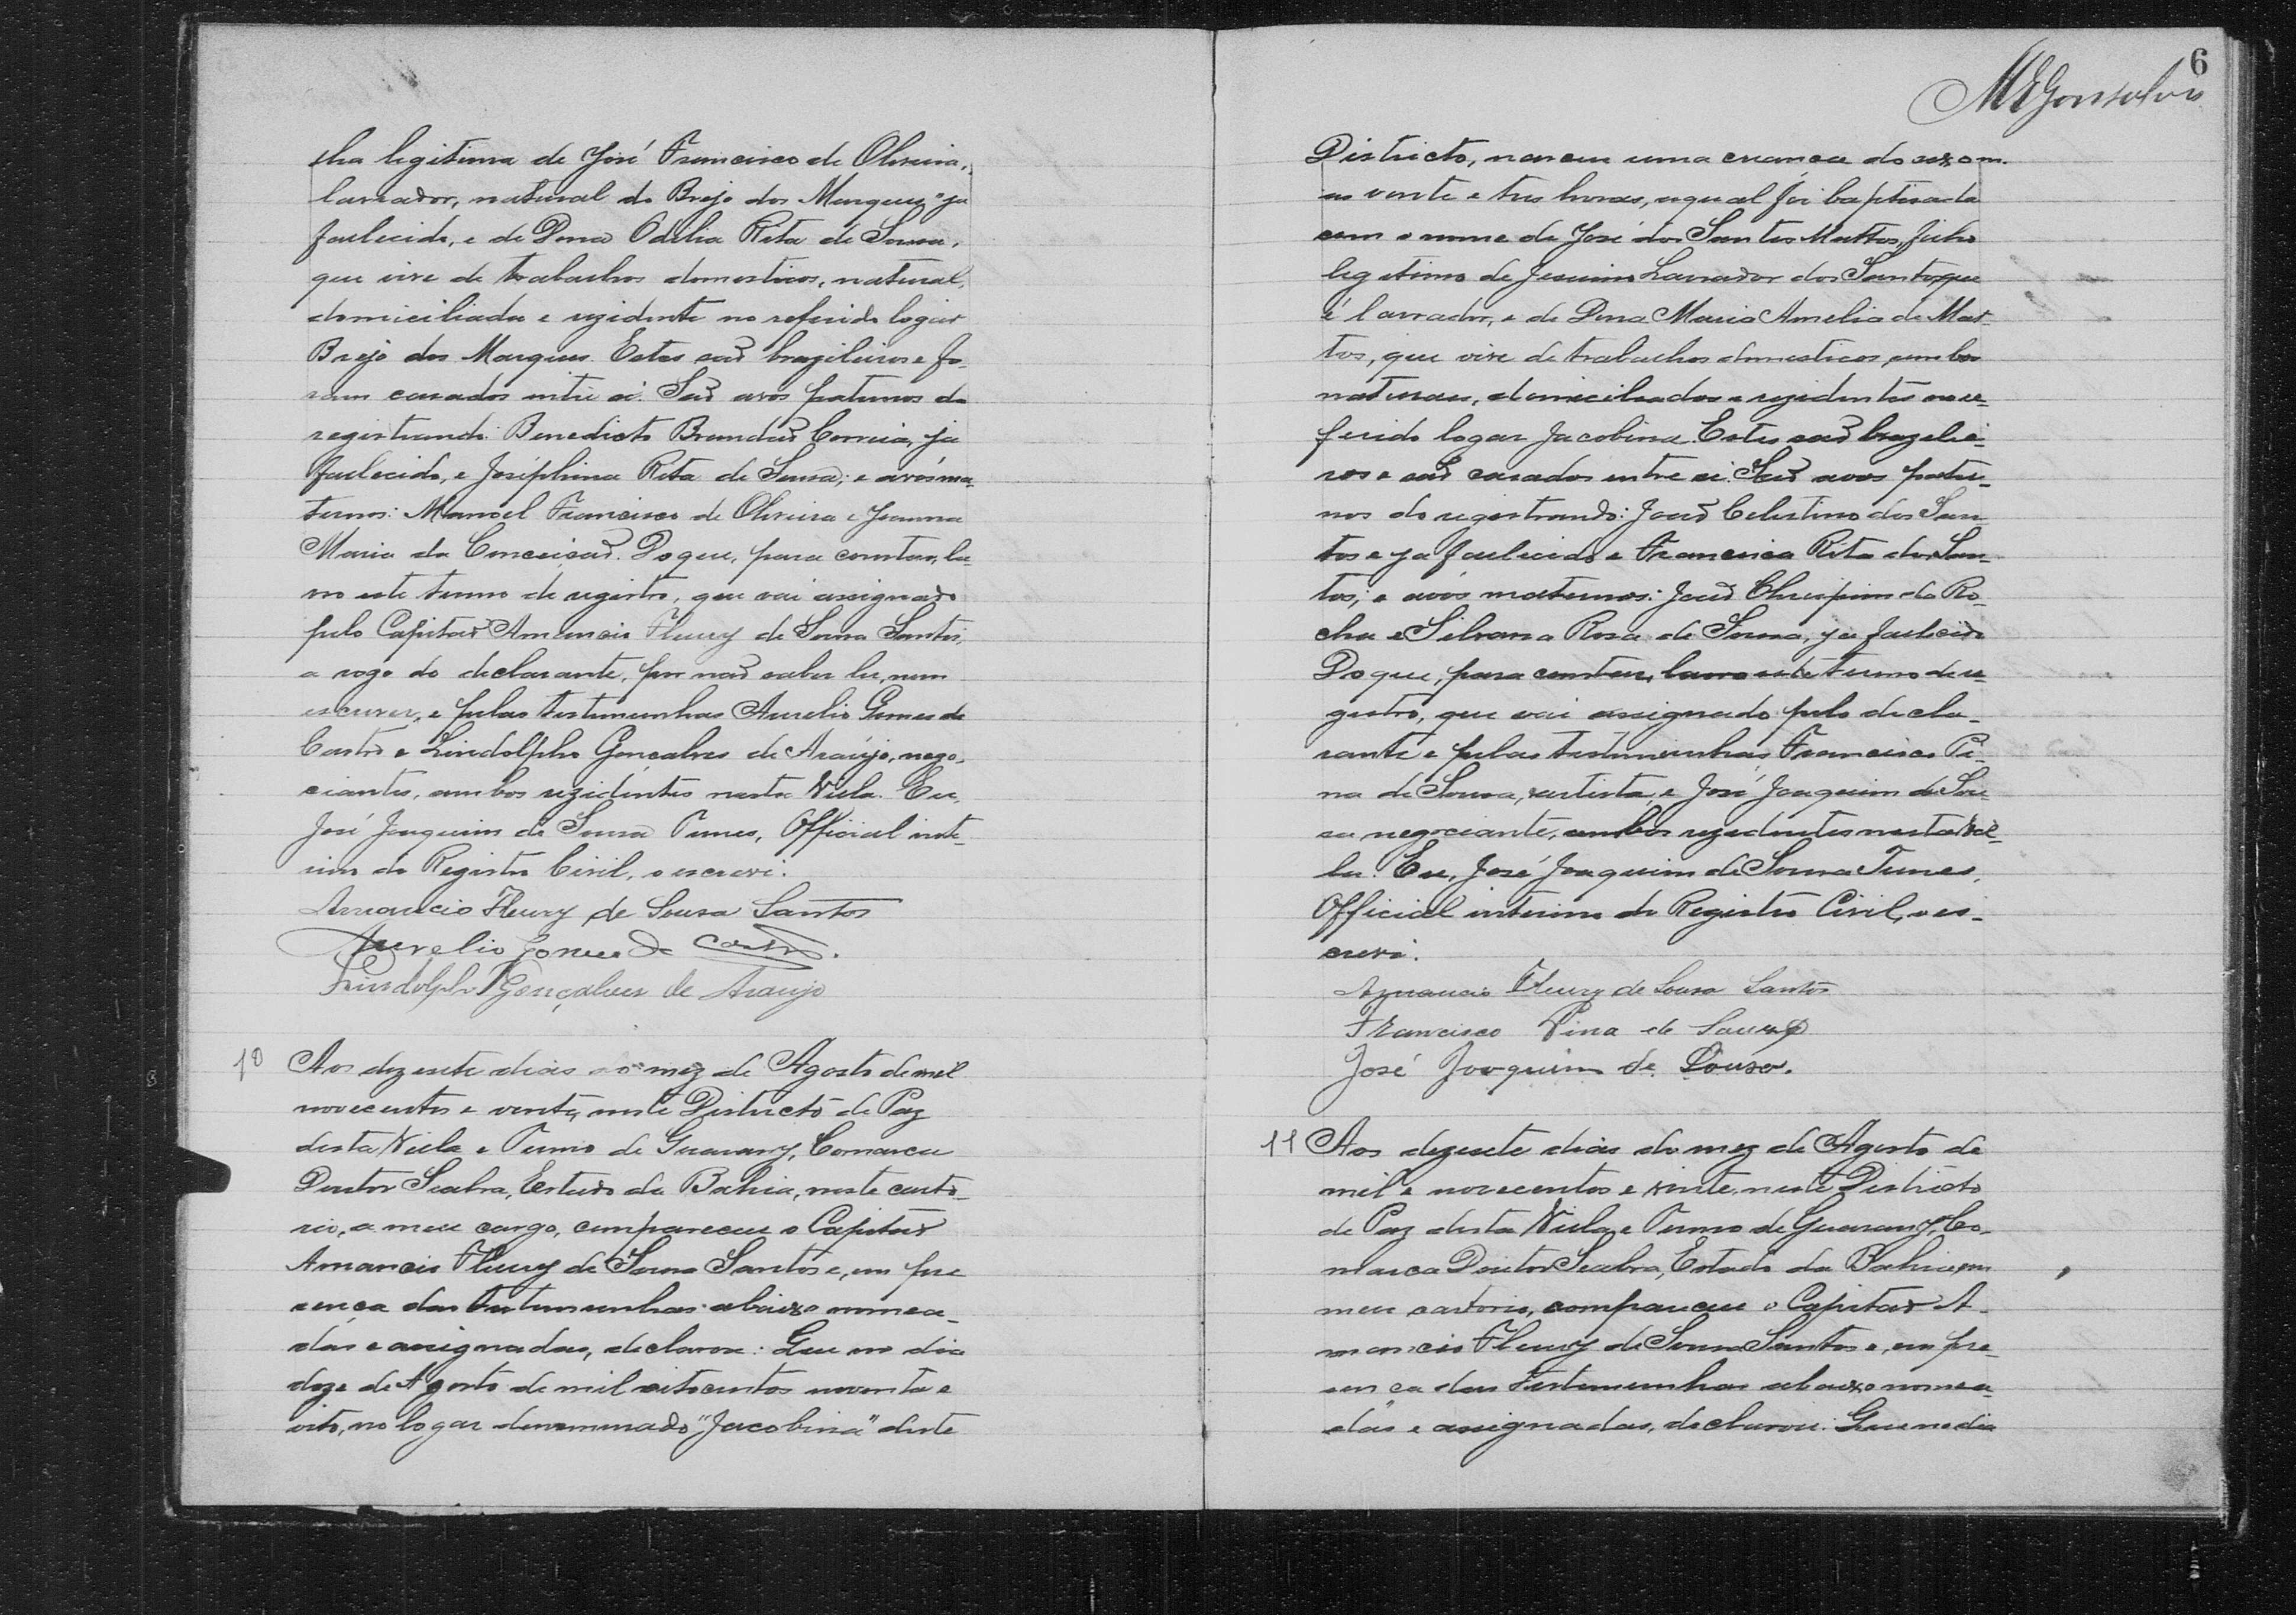 lha legitima de José Francisco de Oliveira,
lavrador, natural do Brejo dos Marques, ja
fallecido, e de Dona Odilia Rita de Sousa,
que vive de trabalhos domesticos, natural,
domiciliada e rezidente no referido logar
Brejo dos Marques. Estes saõ brazileiros e fo-
ram casados entre si. Saõ avós paternos do
registrando: Benedicto Brandaõ Correia, ja
fallecido, e Joséphina Rita de Sousa; e avós ma-
ternos: Manoel Francisco de Oliveira e Joanna
Maria da Conceiçaõ. Do que, para constar, la-
vro este termo de registro, que vai assignado
pelo Capitaõ Amancio Fleury de Sousa Santos,
a rogo do declarante, por naõ saber ler, nem
escrever, e pelas testemunhas Aurelio Gomes de
Castro e Lindolpho Gonçalves de Araújo, nego-
ciantes, ambos rezidentes nesta Villa. Eu,
José Joaquim de Sousa Tunes, Official inte-
rino do Registro Civil, o escrevi.
Amancio Fleury de Sousa Santos
Aurelio Gomes de Castro.
Lindolpho Gonçalves de Araujo
10 Aos dezesete dias do mez de Agosto de mil
novecentos e vinte, neste Districto de Paz
desta Villa e Termo de Guarany, Comarca
Doutor Seabra, Estado da Bahia, neste carto-
rio, a meu cargo, compareceu o Capitaõ
Amancio Fleury de Sousa Santos e, em pre
sença das testemunhas abaixo nomea-
das e assignadas, declarou: Que no dia
doze de Agosto de mil oitocentos noventa e
oito, no logar denominado "Jacobina" deste
6
MEGonsalves
Districto, nasceu uma creança do sexo m.
as vinte e tres horas, a qual foi baptisada
com o nome de José dos Santos Mattos, filho
legitimo de Jesuino Lavrador dos Santos, que
é lavrador, e de Dona Maria Amelia de Mat-
tos, que vive de trabalhos domesticos, ambos
naturaes, domiciliados e rezidentes no re-
ferido logar Jacobina. Estes saõ brazilei-
ros e saõ casados entre si. Saõ avós pater-
nos do registrando: Joaõ Celestino dos San
tos e ja fallecido e Francisca Rita dos San-
tos; e avós maternos: Joaõ Chrispim da Ro-
cha e Silvana Rosa de Sousa, ja fallecida
Do que, para constar, lavro este termo de re-
gistro, que vai assignado pelo decla-
rante e pelas testemunhas Francisco Pi-
na de Sousa, artista, e José Joaquim de Sou-
sa negociante, ambos rezidentes nesta Vil-
la. Eu, José Joaquim de Sousa Tunes,
Official interino do Registro Civil, o es-
crevi.
Amancio Fleury de Sousa Santos
Francisco Pina de Sousa
José Joaquim de Sousa.
11 Aos dezesete dias do mez de Agosto de
mil e novecentos e vinte, neste Districto
de Paz desta Villa e Termo de Guarany, Co-
marca Doutor Seabra, Estado da Bahia, em
meu cartorio, compareceu o Capitaõ A-
mancio Fleury de Sousa Santos e, em pre-
sença das testemunhas abaixo nomea-
das e assignadas, declarou: Que no dia